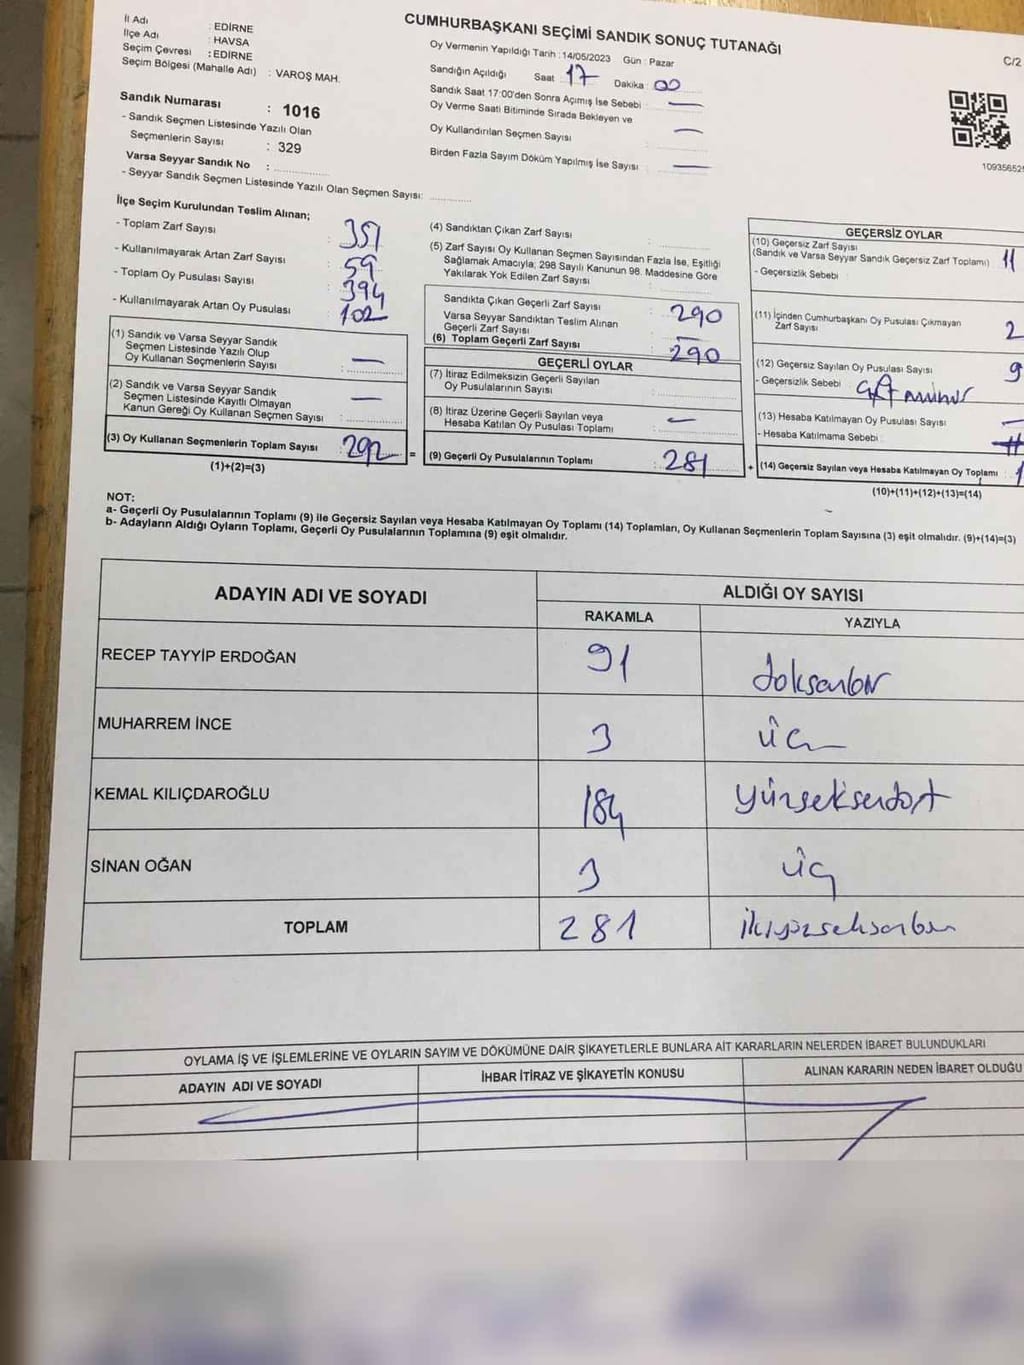 CUMHURBAŞKANI SEÇİMİ SANDIK SONUÇ TUTANAĞI
C/2
İl Adı : EDİRNE
İlçe Adı : HAVSA
Seçim Çevresi : EDİRNE
Seçim Bölgesi (Mahalle Adı) : VAROŞ MAH.
Sandık Numarası : 1016
- Sandık Seçmen Listesinde Yazılı Olan
Seçmenlerin Sayısı : 329
Varsa Seyyar Sandık No :
- Seyyar Sandık Seçmen Listesinde Yazılı Olan Seçmen Sayısı:
Oy Vermenin Yapıldığı Tarih : 14/05/2023 Gün : Pazar
Sandığın Açıldığı Saat : 17 Dakika : 00
Sandık Saat 17:00'den Sonra Açımış İse Sebebi : —
Oy Verme Saati Bitiminde Sırada Bekleyen ve
Oy Kullandırılan Seçmen Sayısı : —
Birden Fazla Sayım Döküm Yapılmış İse Sayısı : —
109356525
İlçe Seçim Kurulundan Teslim Alınan;
- Toplam Zarf Sayısı : 351
- Kullanılmayarak Artan Zarf Sayısı : 59
- Toplam Oy Pusulası Sayısı : 394
- Kullanılmayarak Artan Oy Pusulası : 102
(1) Sandık ve Varsa Seyyar Sandık
Seçmen Listesinde Yazılı Olup
Oy Kullanan Seçmenlerin Sayısı : —
(2) Sandık ve Varsa Seyyar Sandık
Seçmen Listesinde Kayıtlı Olmayan
Kanun Gereği Oy Kullanan Seçmen Sayısı : —
(3) Oy Kullanan Seçmenlerin Toplam Sayısı : 292 =
(1)+(2)=(3)
(4) Sandıktan Çıkan Zarf Sayısı :
(5) Zarf Sayısı Oy Kullanan Seçmen Sayısından Fazla İse, Eşitliği
Sağlamak Amacıyla, 298 Sayılı Kanunun 98. Maddesine Göre
Yakılarak Yok Edilen Zarf Sayısı :
Sandıkta Çıkan Geçerli Zarf Sayısı : 290
Varsa Seyyar Sandıktan Teslim Alınan
Geçerli Zarf Sayısı : —
(6) Toplam Geçerli Zarf Sayısı : 290
GEÇERLİ OYLAR
(7) İtiraz Edilmeksizin Geçerli Sayılan
Oy Pusulalarının Sayısı :
(8) İtiraz Üzerine Geçerli Sayılan veya
Hesaba Katılan Oy Pusulası Toplamı : —
(9) Geçerli Oy Pusulalarının Toplamı : 281 +
GEÇERSİZ OYLAR
(10) Geçersiz Zarf Sayısı
(Sandık ve Varsa Seyyar Sandık Geçersiz Zarf Toplamı) : 11
- Geçersizlik Sebebi :
(11) İçinden Cumhurbaşkanı Oy Pusulası Çıkmayan
Zarf Sayısı 2
(12) Geçersiz Sayılan Oy Pusulası Sayısı : 9
- Geçersizlik Sebebi :
(13) Hesaba Katılmayan Oy Pusulası Sayısı : —
- Hesaba Katılmama Sebebi :
(14) Geçersiz Sayılan veya Hesaba Katılmayan Oy Toplamı :
(10)+(11)+(12)+(13)=(14)
NOT:
a- Geçerli Oy Pusulalarının Toplamı (9) ile Geçersiz Sayılan veya Hesaba Katılmayan Oy Toplamı (14) Toplamları, Oy Kullanan Seçmenlerin Toplam Sayısına (3) eşit olmalıdır. (9)+(14)=(3)
b- Adayların Aldığı Oyların Toplamı, Geçerli Oy Pusulalarının Toplamına (9) eşit olmalıdır.
ADAYIN ADI VE SOYADI
ALDIĞI OY SAYISI
RAKAMLA YAZIYLA
RECEP TAYYİP ERDOĞAN 91 doksanbir
MUHARREM İNCE 3 üç
KEMAL KILIÇDAROĞLU 184 yüzseksendört
SİNAN OĞAN 3 üç
TOPLAM 281 ikiyüzseksenbir
OYLAMA İŞ VE İŞLEMLERİNE VE OYLARIN SAYIM VE DÖKÜMÜNE DAİR ŞİKAYETLERLE BUNLARA AİT KARARLARIN NELERDEN İBARET BULUNDUKLARI
ADAYIN ADI VE SOYADI İHBAR İTİRAZ VE ŞİKAYETİN KONUSU ALINAN KARARIN NEDEN İBARET OLDUĞU